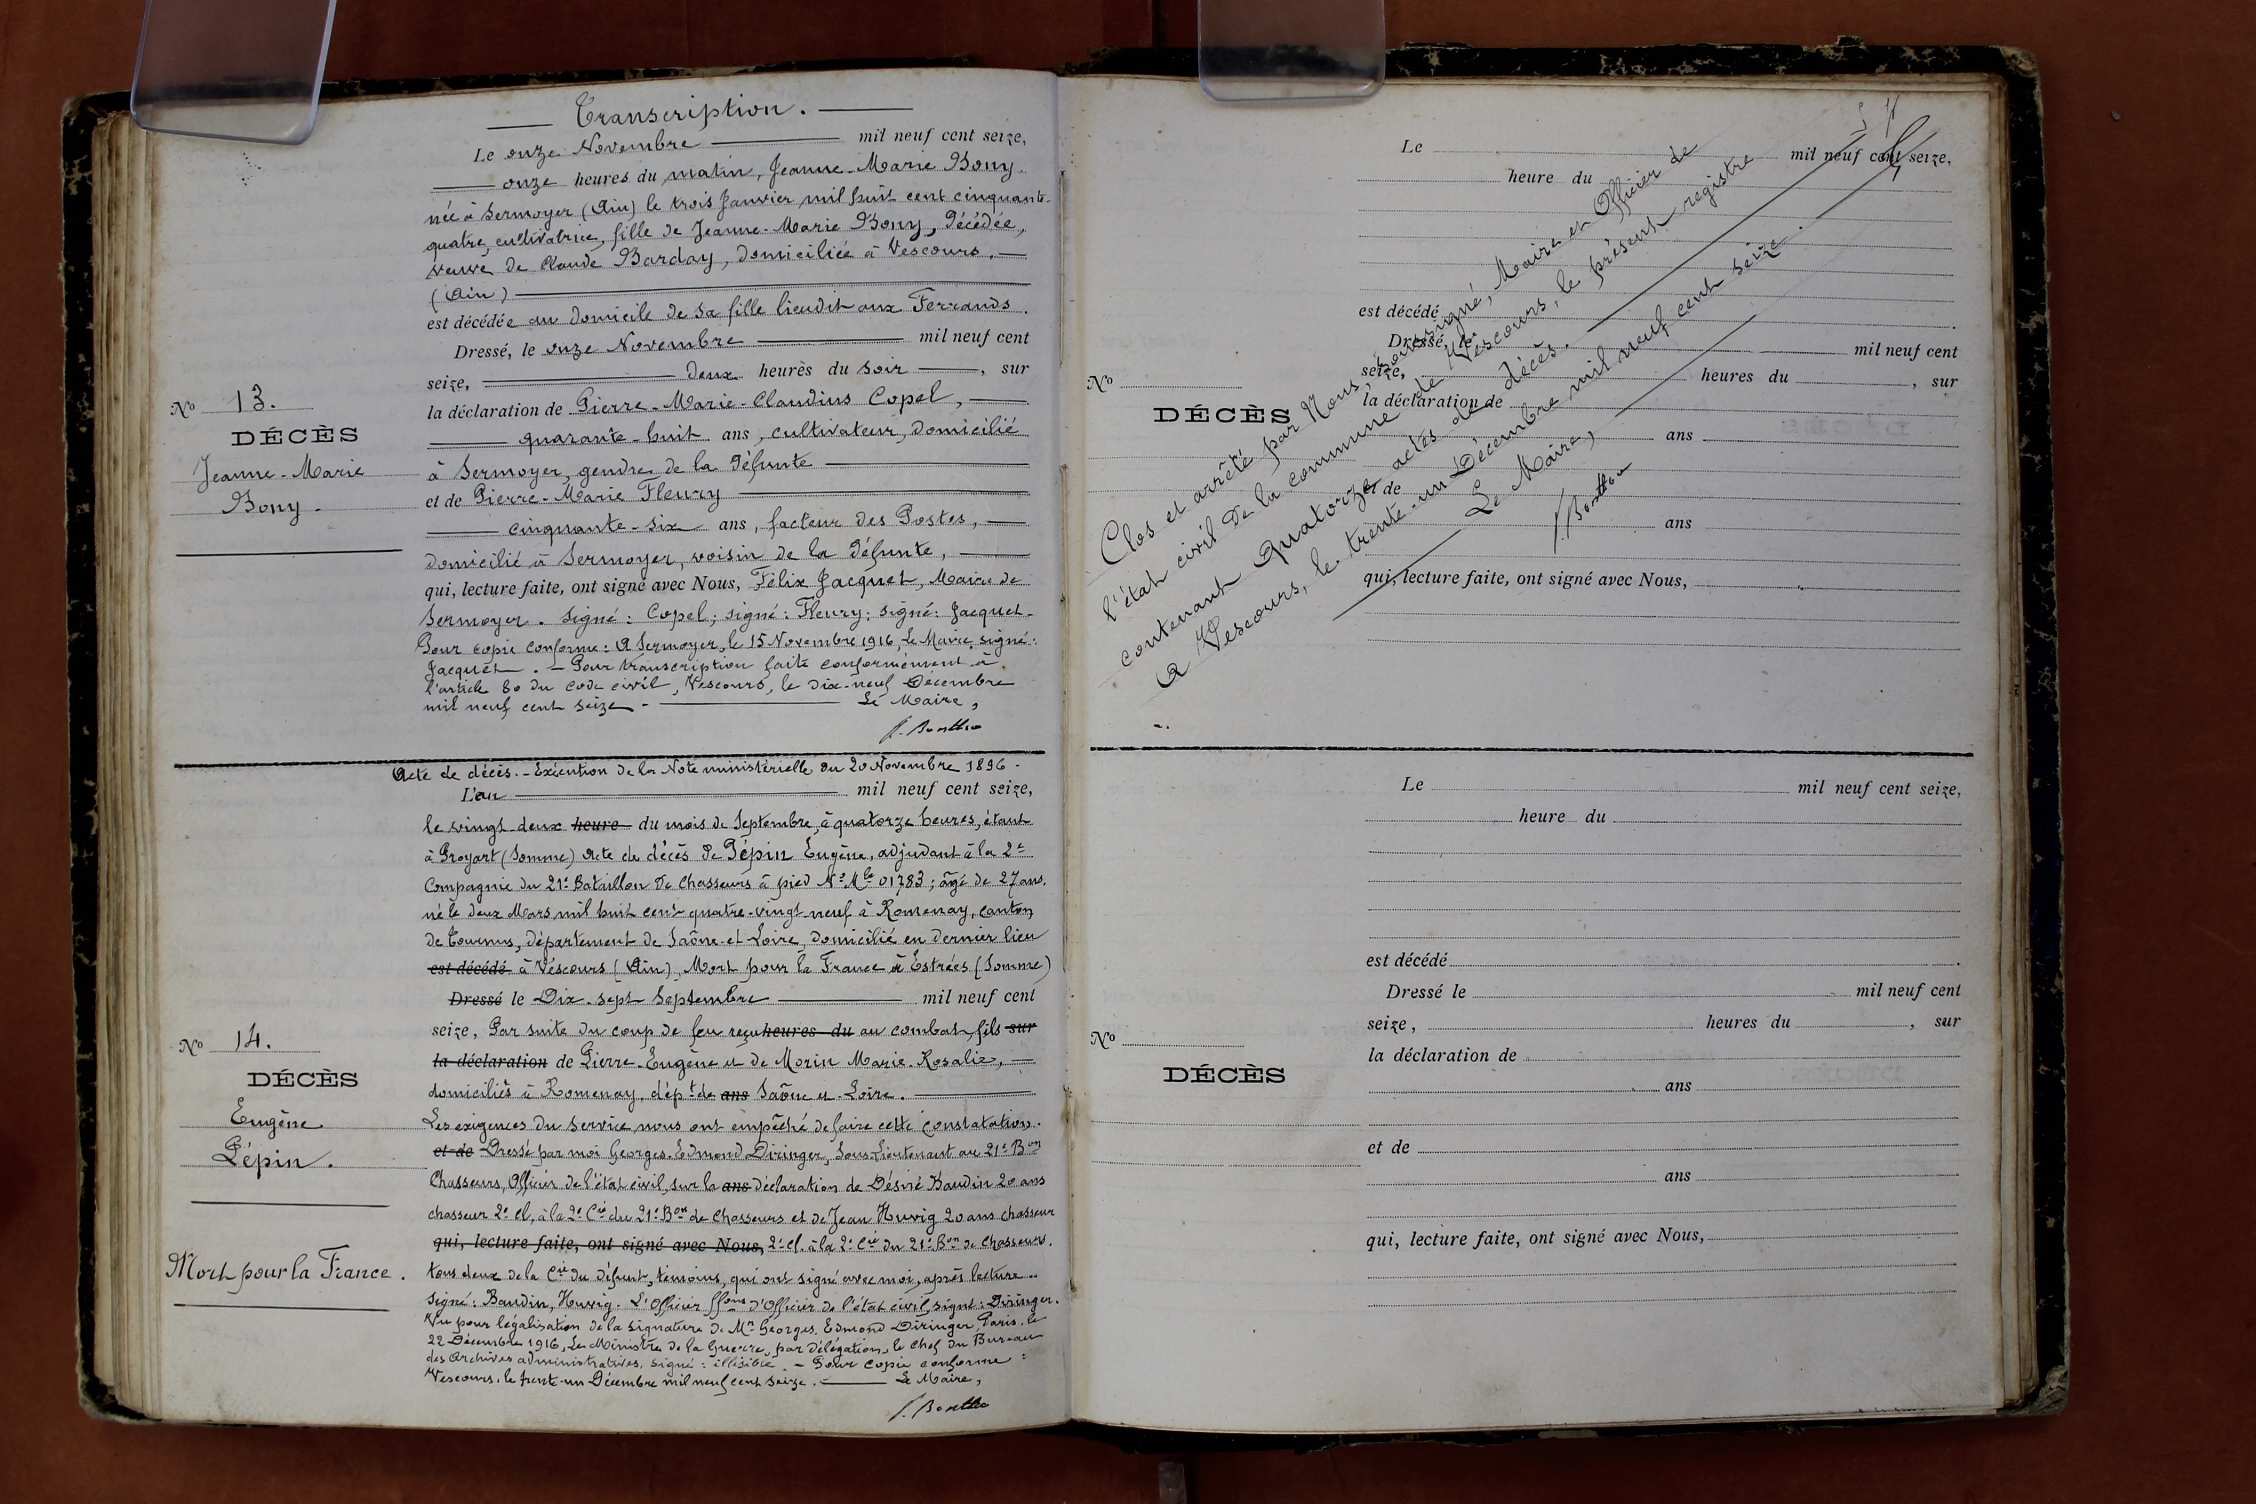 Transcription.
Le onze Novembre mil neuf cent seize,
onze heures du matin, Jeanne-Marie Bony
née à Sermoyer (Ain) le trois Janvier mil huit cent cinquante-
quatre, cultivatrice, fille de Jeanne-Marie Bony, décédée,
veuve de Claude Barday, domiciliée à Vescours,
(Ain)
est décédée au domicile de sa fille lieudit aux Ferrands.
Dressé, le onze Novembre mil neuf cent
seize, deux heures du soir, sur
la déclaration de Pierre-Marie-Claudius Copel,
quarante-huit ans, cultivateur, domicilié
à Sermoyer, gendre de la défunte
et de Pierre-Marie Fleury
cinquante-six ans, facteur des Postes,
domicilié à Sermoyer, voisin de la défunte,
qui, lecture faite, ont signé avec Nous, Félix Jacquet, Maire de
Sermoyer. Signé: Copel; signé: Fleury; signé: Jacquet.
Pour copie conforme: A Sermoyer, le 15 Novembre 1916, le Maire, signé:
Jacquet. - Pour transcription faite conformément à
l'article 80 du code civil, Vescours, le dix-neuf Décembre
mil neuf cent seize. - Le Maire,
J. Bonthou
No 13.
DÉCÈS
Jeanne-Marie
Bony.
Acte de décès. - Exécution de la Note ministérielle du 20 Novembre 1896.
L'an mil neuf cent seize,
le vingt-deux heure du mois de Septembre, à quatorze heures, étant
à Proyart (Somme) Acte de décès de Pépin Eugène, adjudant à la 2e
Compagnie du 21e Bataillon de Chasseurs à pied No Mle 01783; âgé de 27 ans,
né le deux Mars mil huit cent quatre-vingt-neuf à Romenay, canton
de Tournus, département de Saône-et-Loire, domicilié en dernier lieu
est décédé à Vescours (Ain), Mort pour la France à Estrées (Somme)
Dressé le Dix-sept Septembre mil neuf cent
seize, Par suite du coup de feu reçu heures du au combat, fils sur
la déclaration de Pierre-Eugène et de Morin Marie-Rosalie,
domiciliés à Romenay, dépt de ans Saône-et-Loire.
Les exigences du service nous ont empêché de faire cette constatation.
et de Dressé par moi Georges-Edmond Diringer, Sous-Lieutenant au 21e Bon
Chasseurs, Officier de l'état civil, sur la ans déclaration de Désiré Baudin 20 ans
chasseur 2e cl, à la 2e Cie du 21e Bon de Chasseurs et de Jean Huvig 20 ans chasseur
qui, lecture faite, ont signé avec Nous, 2e cl. à la 2e Cie du 21e Bon de Chasseurs.
tous deux de la Cie du défunt, témoins, qui ont signé avec moi, après lecture.
Signé: Baudin, Huvig. L'Officier ffons d'Officier de l'état civil, signé: Diringer.
Vu pour légalisation de la signature de Mr Georges, Edmond Diringer, Paris, le
22 Décembre 1916, Le Ministre de la Guerre, par délégation, le Chef du Bureau
des Archives administratives, signé: illisible. - Pour copie conforme:
Vescours, le trente-un Décembre mil neuf cent seize. Le Maire,
J. Bonthou
No 14.
DÉCÈS
Eugène
Pépin.
Mort pour la France.
Le mil neuf cent seize,
heure du
est décédé
Dressé, le mil neuf cent
seize, heures du, sur
la déclaration de
ans
et de
ans
qui, lecture faite, ont signé avec Nous,
No
DÉCÈS
Clos et arrêté par Nous soussigné, Maire en Officier de
l'état civil de la commune de Vescours, le présent registre
contenant quatorze actes de décès.
A Vescours, le trente-un Décembre mil neuf cent seize.
Le Maire,
J. Bonthou
Le mil neuf cent seize,
heure du
est décédé
Dressé le mil neuf cent
seize, heures du, sur
la déclaration de
ans
et de
ans
qui, lecture faite, ont signé avec Nous,
No
DÉCÈS